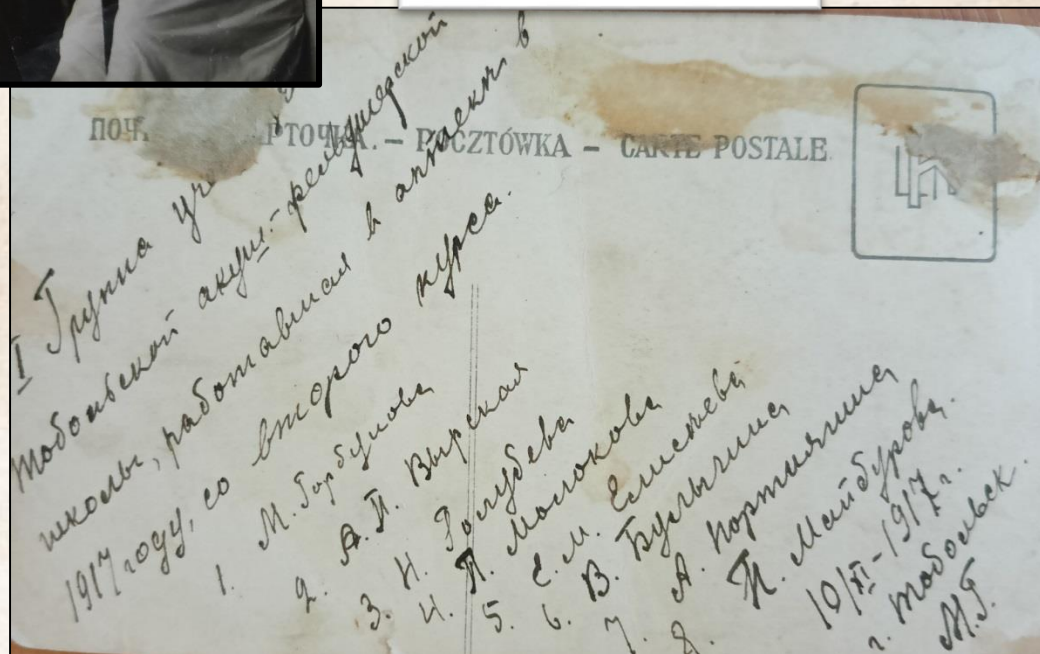 ПОЧ РТОЧКА. – POCZTÓWKA – CARTE POSTALE
I Группа уч
тобольской акуш. фельдшерской
школы, работавшая в аптеке в
1917 году, со второго курса.
1. М. Горбунова
2. А. П. Вырская
3. Н. Голубева
4. П. Молокова
5. Е. М. Елисеева
6. В. Булыгина
7. А. Портнягина
8. П. Майбурова.
10/XI-1917 г.
г. Тобольск.
М.Г.